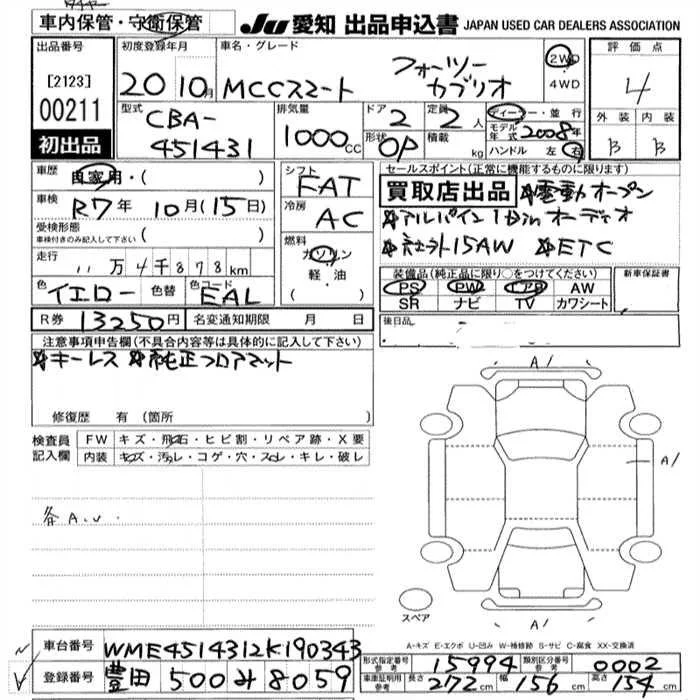 車内保管・守衛保管
JU 愛知 出品申込書 JAPAN USED CAR DEALERS ASSOCIATION
出品番号
[2123]
00211
初出品
初度登録年月
20 10月
車名・グレード
MCCスマート フォーツー カブリオ
2WD
4WD
評価点
4
外装 内装
B B
型式
CBA-
451431
排気量
1000cc
ドア
2
形状
OP
定員
2人
積載
kg
ディーラー・並行
モデル年式 2008年
ハンドル 左 右
車歴 自家用・( )
車検 R7年 10月(15日)
受検形態
車検付きのみ記入して下さい ( )
走行 11万4千878km
色 イエロー 色替 色コード EAL
シフト
FAT
冷房
AC
燃料
ガソリン
軽・油
( )
セールスポイント(正常に機能するものに限ります)
買取店出品 ☆電動オープン
☆アルパイン1Dinオーディオ
☆社外15AW ☆ETC
装備品(純正品に限り○をつけてください)
PS PW エアB AW
SR ナビ TV カワシート
新車保証書
後日品
R券 13250円 名変通知期限 月 日
注意事項申告欄(不具合内容等は具体的に記入して下さい)
☆キーレス ☆純正フロアマット
修復歴 有(箇所 )
検査員記入欄
FW キズ・飛石・ヒビ割・リペア跡・X要
内装 キズ・汚れ・コゲ・穴・スレ・キレ・破レ
各A.U.
A1
A1
A1
スペア
A-キズ E-エクボ U-凹み W-補修跡 S-サビ C-腐食 XX-交換済
車台番号 WME4514312K190343
登録番号 豊田 500 み 8059
形式指定番号 参考 15994 類別区分番号 参考 0002
車庫証明用 参考 長さ 272cm 幅 156cm 高さ 154cm